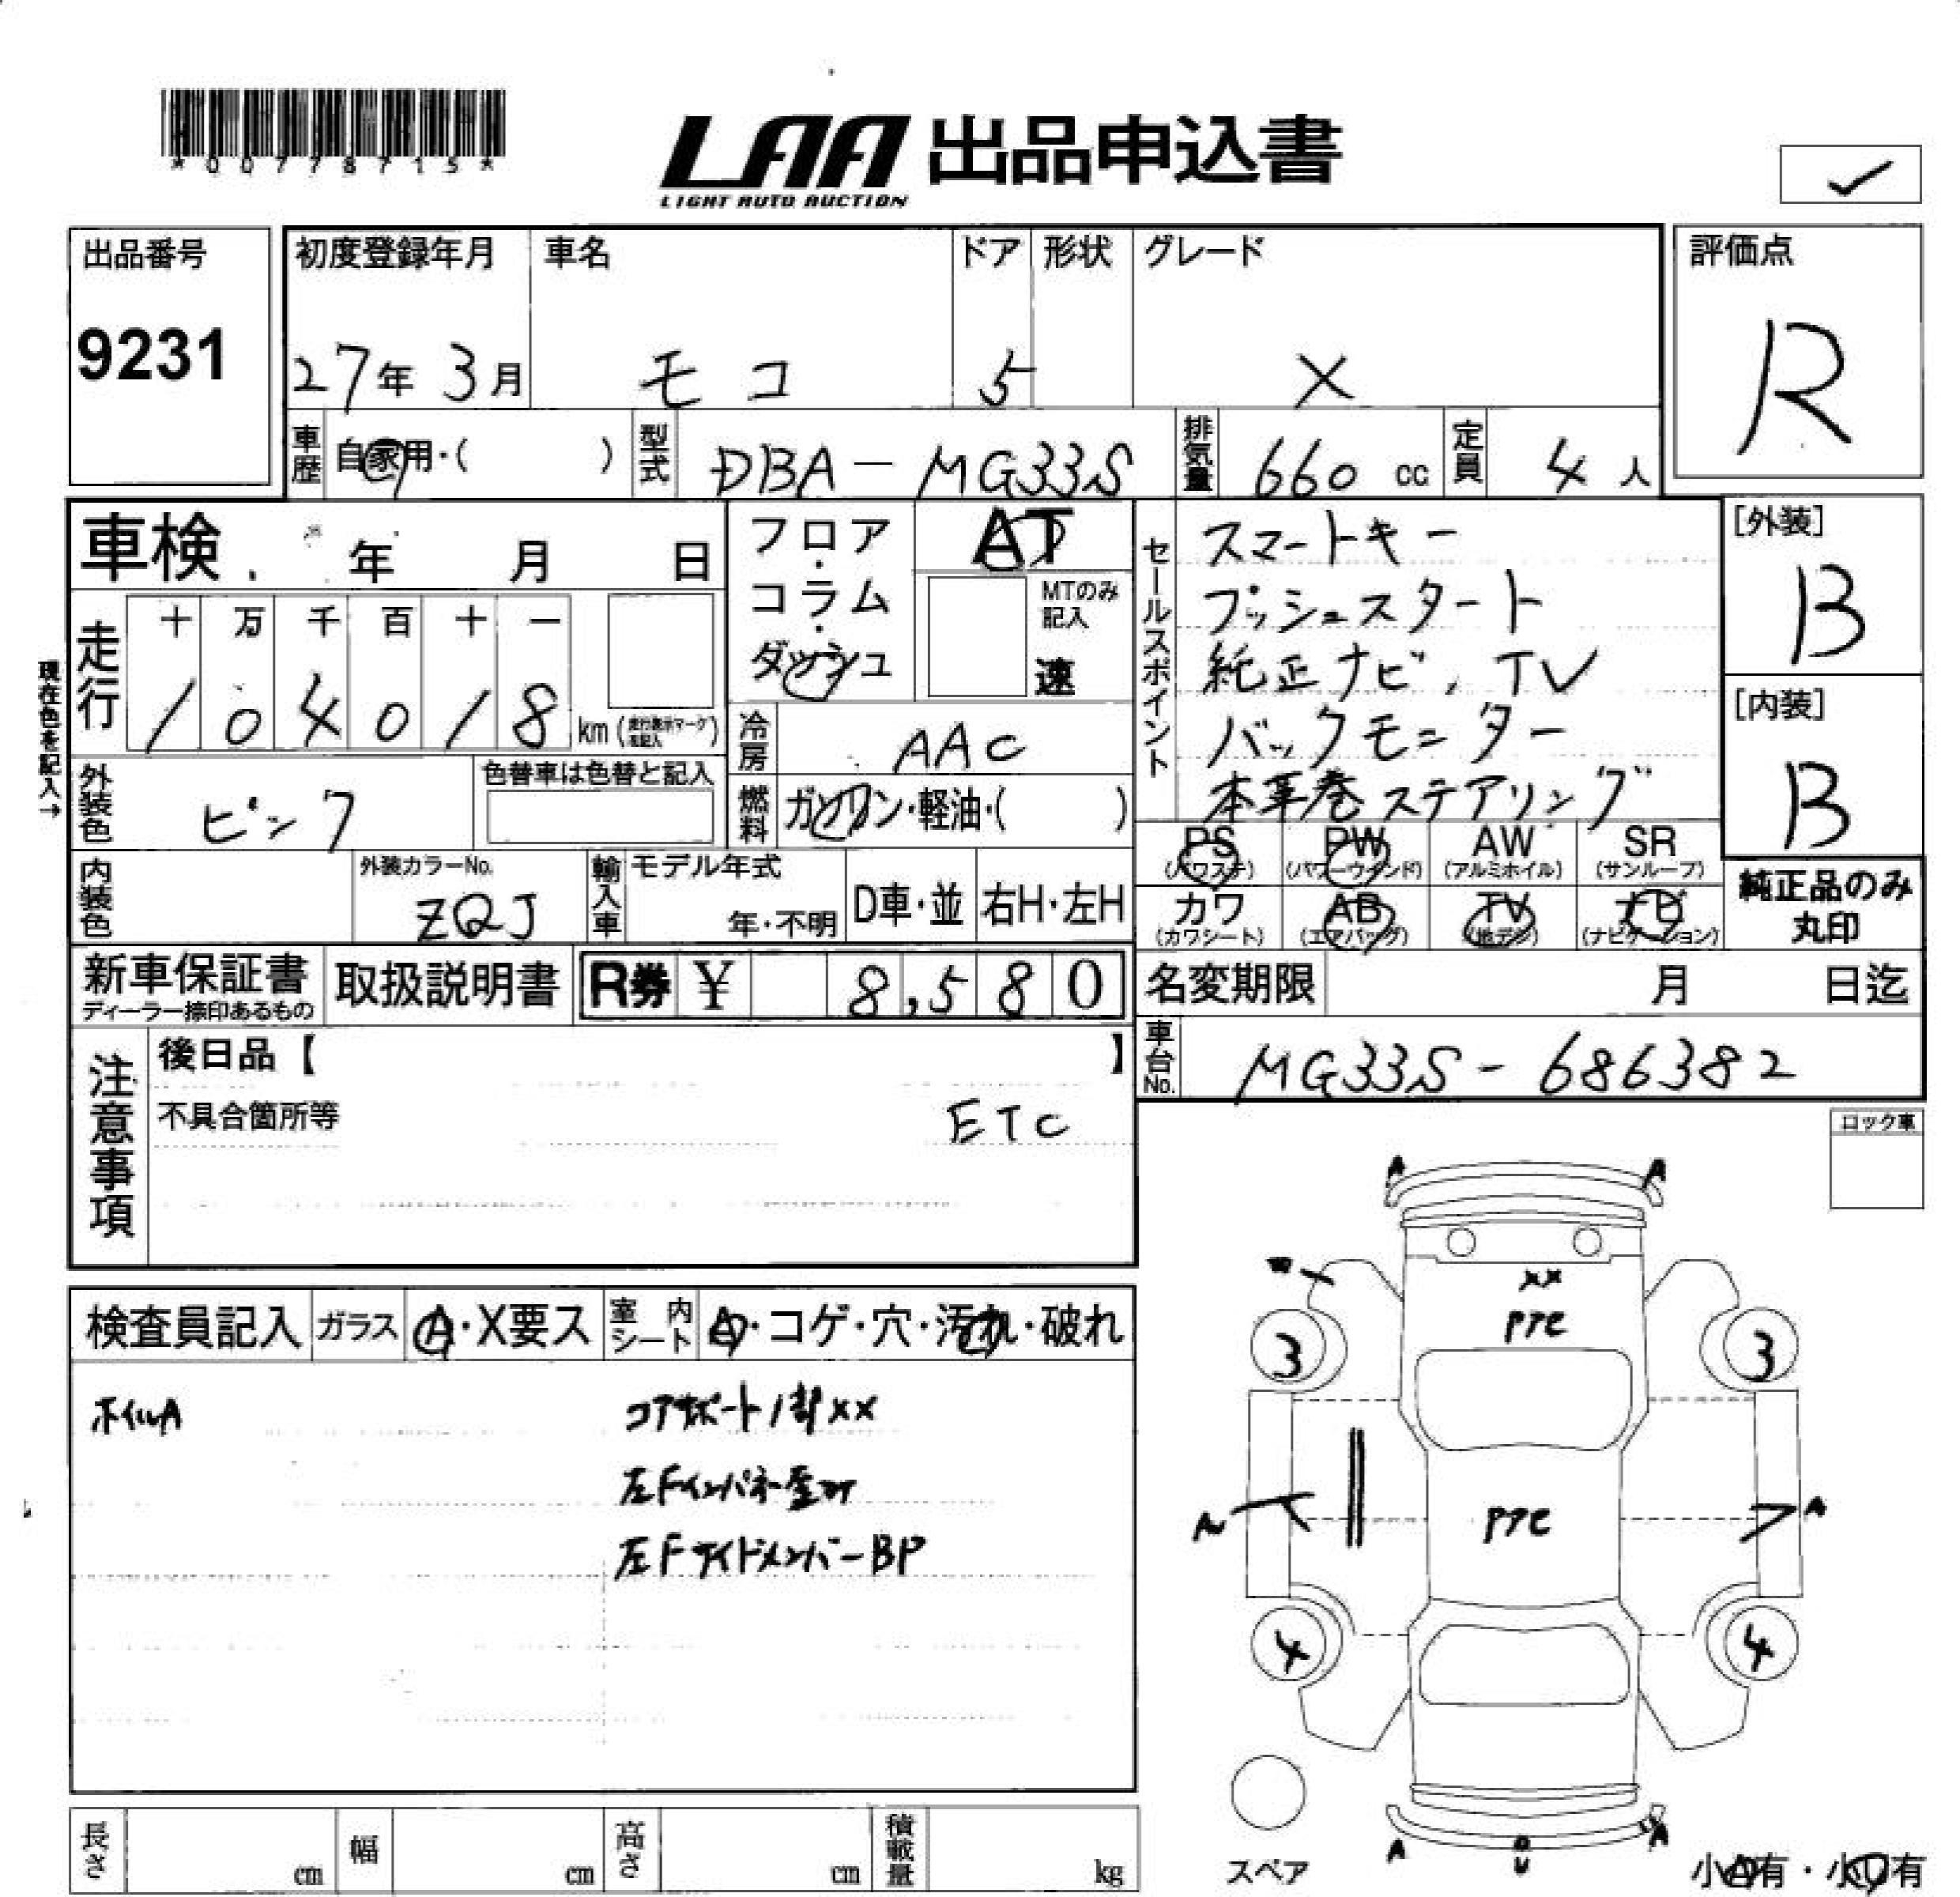 *00778715*
LAA 出品申込書
LIGHT AUTO AUCTION
出品番号
9231
初度登録年月
27年 3月
車名
モコ
ドア
5
形状
グレード
X
評価点
R
車歴
自家用・( )
型式
DBA-MG33S
排気量
660 cc
定員
4 人
車検 年 月 日
フロア・コラム・ダッシュ
AT
MTのみ記入
速
セールスポイント
スマートキー
プッシュスタート
純正ナビ, TV
バックモニター
本革巻ステアリング
[外装]
B
[内装]
B
現在色を記入→
走行
十 万 千 百 十 一
1 0 4 0 1 8 km
冷房
AAC
外装色
ピンク
色替車は色替と記入
燃料
ガソリン・軽油・( )
PS
(パワステ)
PW
(パワーウインド)
AW
(アルミホイル)
SR
(サンルーフ)
内装色
外装カラーNo.
ZQJ
輸入車
モデル年式
年・不明
D車・並
右H・左H
カワ
(カワシート)
AB
(エアバッグ)
TV
(地デジ)
ナビ
(ナビゲーション)
純正品のみ
丸印
新車保証書
ディーラー捺印あるもの
取扱説明書
R券 ¥ 8,580
名変期限 月 日迄
注意事項
後日品【 】
車台No.
MG33S-686382
不具合箇所等
ETC
ロック車
検査員記入
ガラス
A・X要ス
室内シート
A・コゲ・穴・汚れ・破れ
ホイルA
コアサポート1部XX
左Fインパネー歪み
左FサイドメンバーBP
A A
XX
PTE
3 3
A
PTE
4 4
A A
スペア
小A有・小U有
長さ cm
幅 cm
高さ cm
積載量 kg